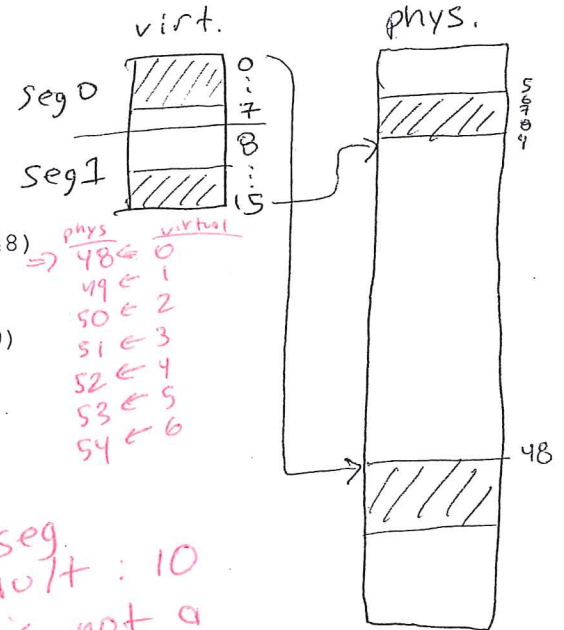 virt.
phys.
seg 0
0
⋮
7
seg 1
8
⋮
15
5
6
7
8
9
8)
)
phys virtual
=> 48 ← 0
49 ← 1
50 ← 2
51 ← 3
52 ← 4
53 ← 5
54 ← 6
48
seg
: 10
not a